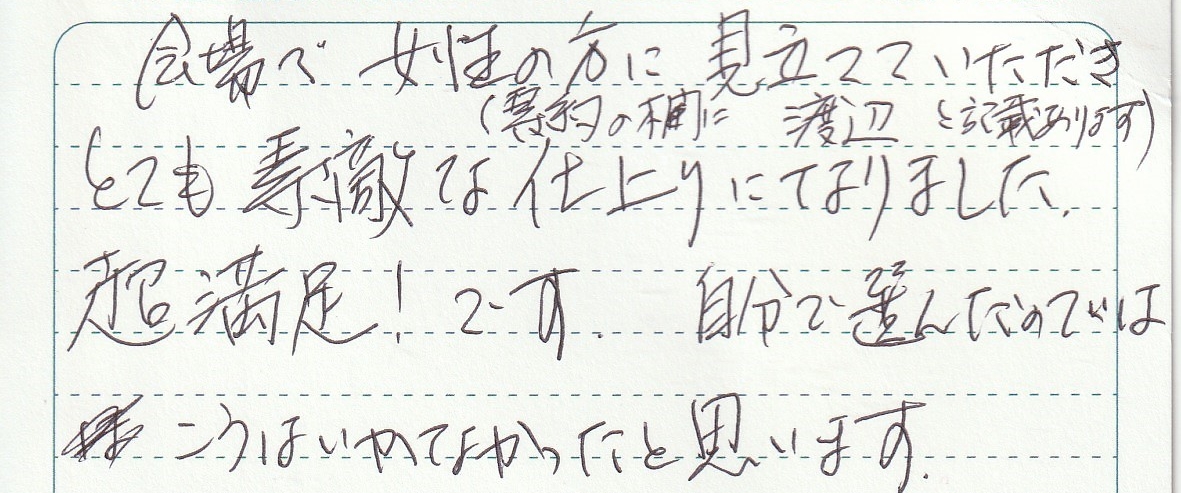 会場で 女性の方に 見立てていただき
(予約の欄に 渡辺 と記載あります)
とても素敵な仕上りになりました.
超満足！です. 自分で選んだのでは
こうはいかなかったと思います.